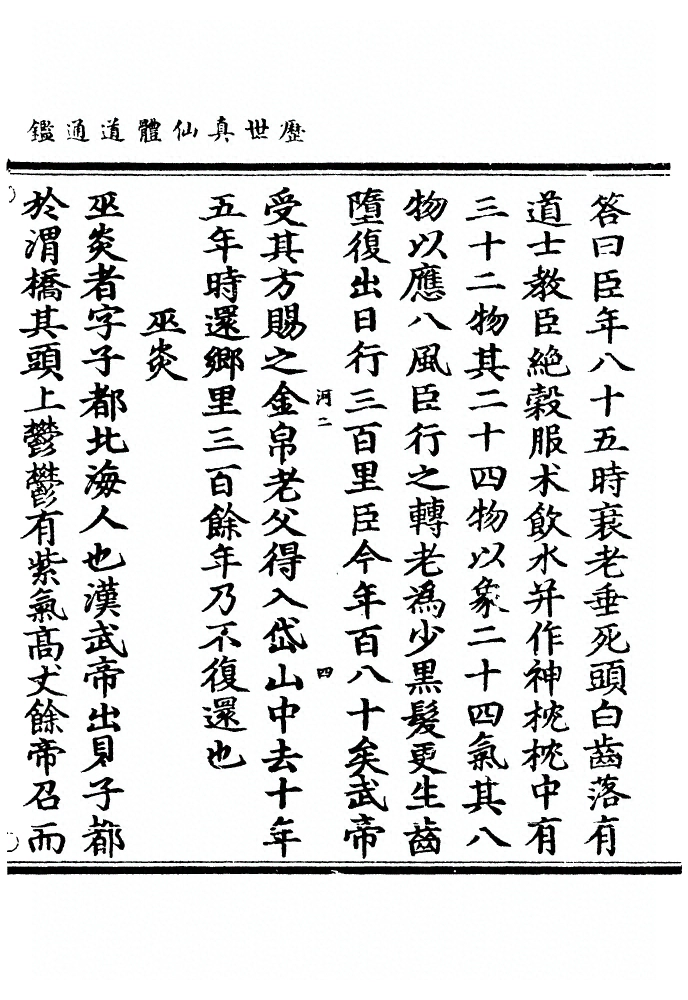 歷世真仙體道通鑑
答曰臣年八十五時衰老垂死頭白齒落有
道士教臣絕穀服术飲水并作神枕枕中有
三十二物其二十四物以象二十四氣其八
物以應八風臣行之轉老爲少黑髮更生齒
墮復出日行三百里臣今年百八十矣武帝
河二
四
受其方賜之金帛老父得入岱山中去十年
五年時還鄉里三百餘年乃不復還也
巫炎
巫炎者字子都北海人也漢武帝出見子都
於渭橋其頭上鬱鬱有紫氣高丈餘帝召而